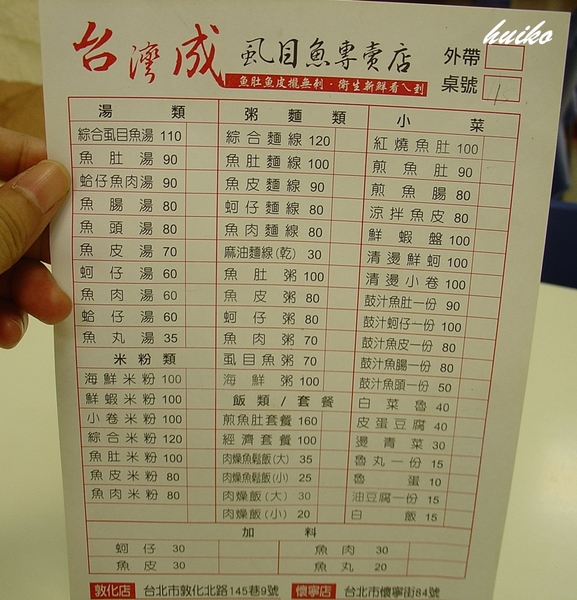 huiko
台灣成 虱目魚專賣店
魚肚魚皮攏無刺·衛生新鮮看ㄟ到
外帶
桌號
湯類
綜合虱目魚湯 110
魚肚湯 90
蛤仔魚肉湯 90
魚腸湯 80
魚頭湯 80
魚皮湯 70
蚵仔湯 60
魚肉湯 60
蛤仔湯 60
魚丸湯 35
米粉類
海鮮米粉 100
鮮蝦米粉 100
小卷米粉 100
綜合米粉 120
魚肚米粉 100
魚皮米粉 80
魚肉米粉 80
粥麵類
綜合麵線 120
魚肚麵線 100
魚皮麵線 90
蚵仔麵線 80
魚肉麵線 80
麻油麵線(乾) 30
魚肚粥 100
魚皮粥 80
蚵仔粥 80
魚肉粥 70
虱目魚粥 70
海鮮粥 100
飯類/套餐
煎魚肚套餐 160
經濟套餐 100
肉燥魚鬆飯(大) 35
肉燥魚鬆飯(小) 25
肉燥飯(大) 30
肉燥飯(小) 20
小菜
紅燒魚肚 100
煎魚肚 90
煎魚腸 80
涼拌魚皮 80
鮮蝦盤 100
清燙鮮蚵 100
清燙小卷 100
鼓汁魚肚一份 90
鼓汁蚵仔一份 100
鼓汁魚皮一份 80
鼓汁魚腸一份 80
鼓汁魚頭一份 50
白菜魯 40
皮蛋豆腐 40
燙青菜 30
魯丸一份 15
魯蛋 10
油豆腐一份 15
白飯 15
加料
蚵仔 30
魚肉 30
魚皮 30
魚丸 20
敦化店 台北市敦化北路145巷9號 懷寧店 台北市懷寧街84號